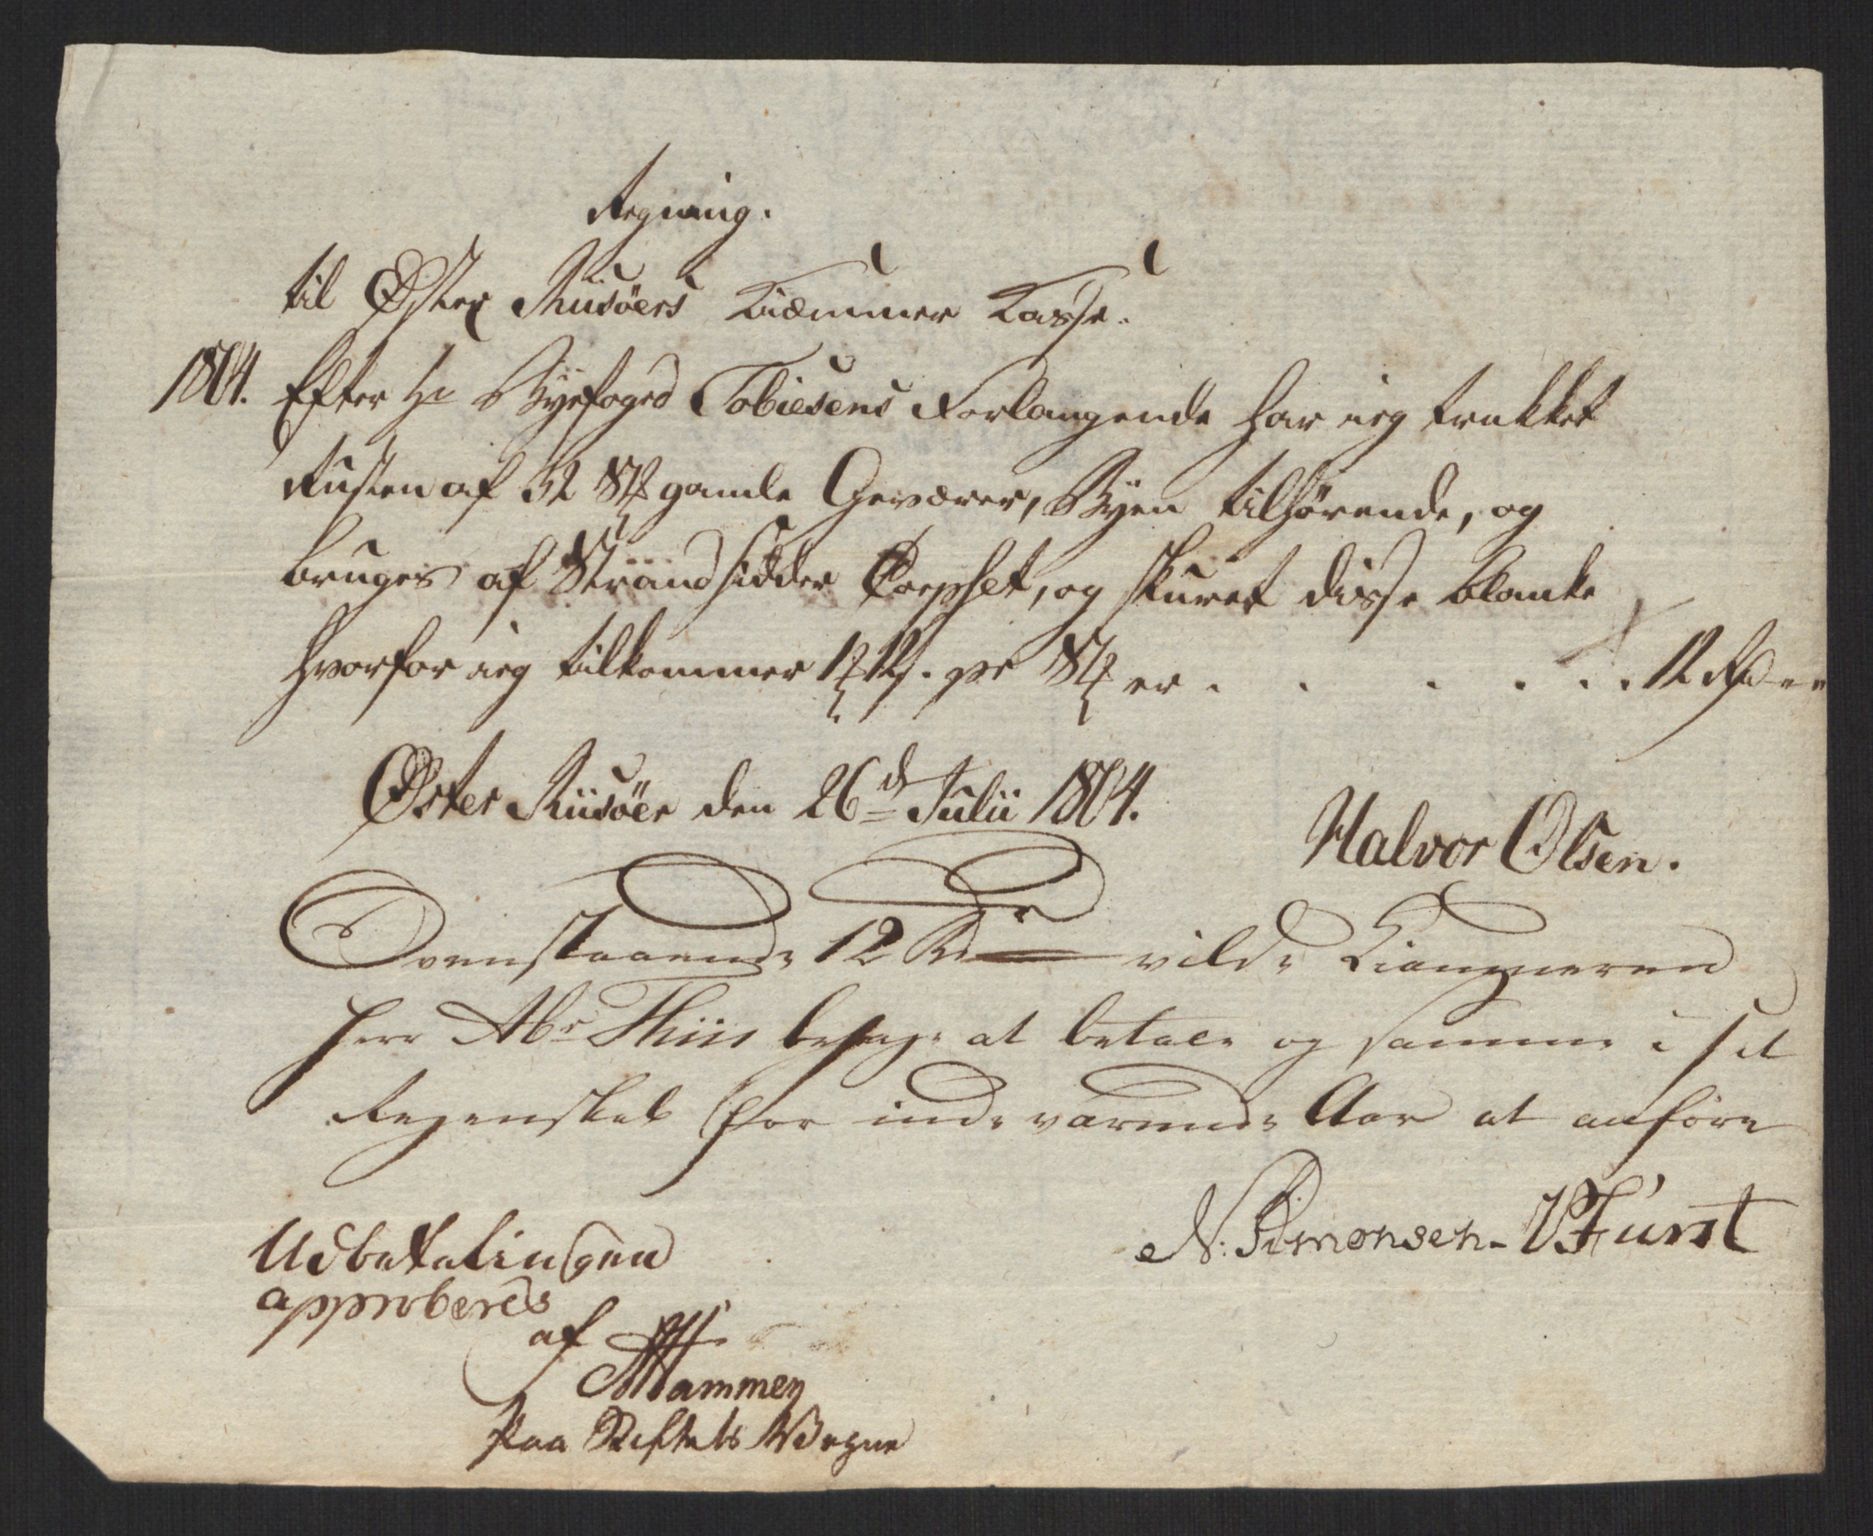 Regning.
til Øster Riisöers Kiæmmer Casse.
1804. Efter Hr Byefoged Tobiesens Forlangende har ieg trukket
Rusten af 32 St gamle Geværer, Byen tilhørende, og
bruges af Strandsidder Corpset, og skuret disse blanke
hvorfor ieg tilkommer pr St er . . . . . . 12 Rd - -
Øster Riisöer den 26d Julii 1804.
Halvor Olsen.
Ovenstaaende 12 Rdr vilde Kiæmneren
Herr Abr Thiis behage at betale og samme i sit
Regenskab for inde værende Aar at anføre
N. Simonsen. Fürst
Udbetalingen
approberes
af
Hammer
Paa Stiftets Vegne